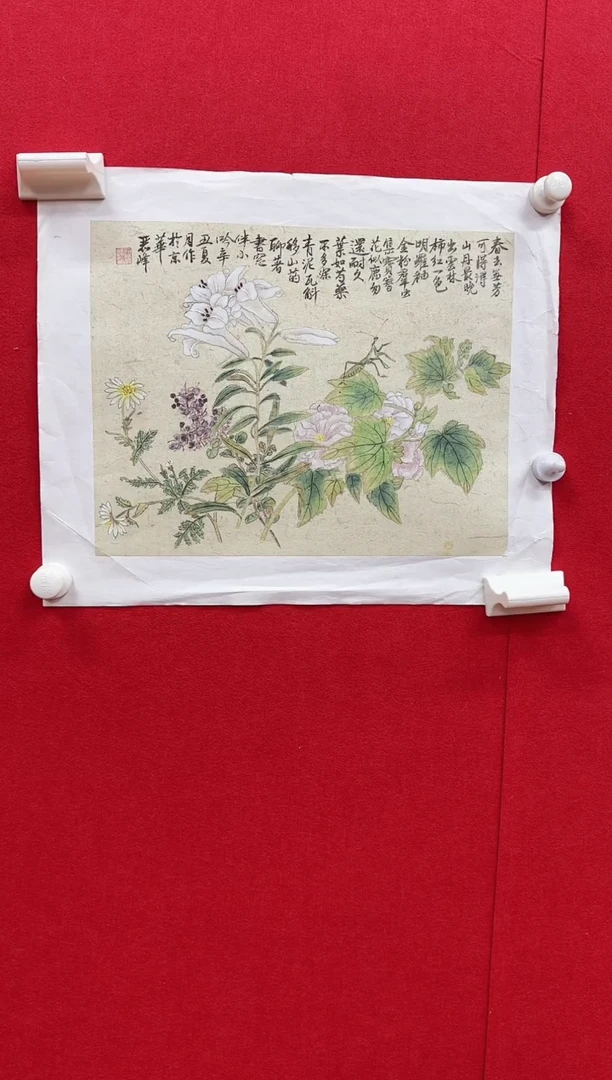 春去無芳
可得尋
山丹最晚
出雲林
柿紅一色
明羅袖
金粉羣虫
集寶簪
花似鹿
還耐久
葉如芍藥
不多深
青泥瓦斛
移山
聊著
書窓
伴小
吟辛
丑夏
月作
於京
華
峰